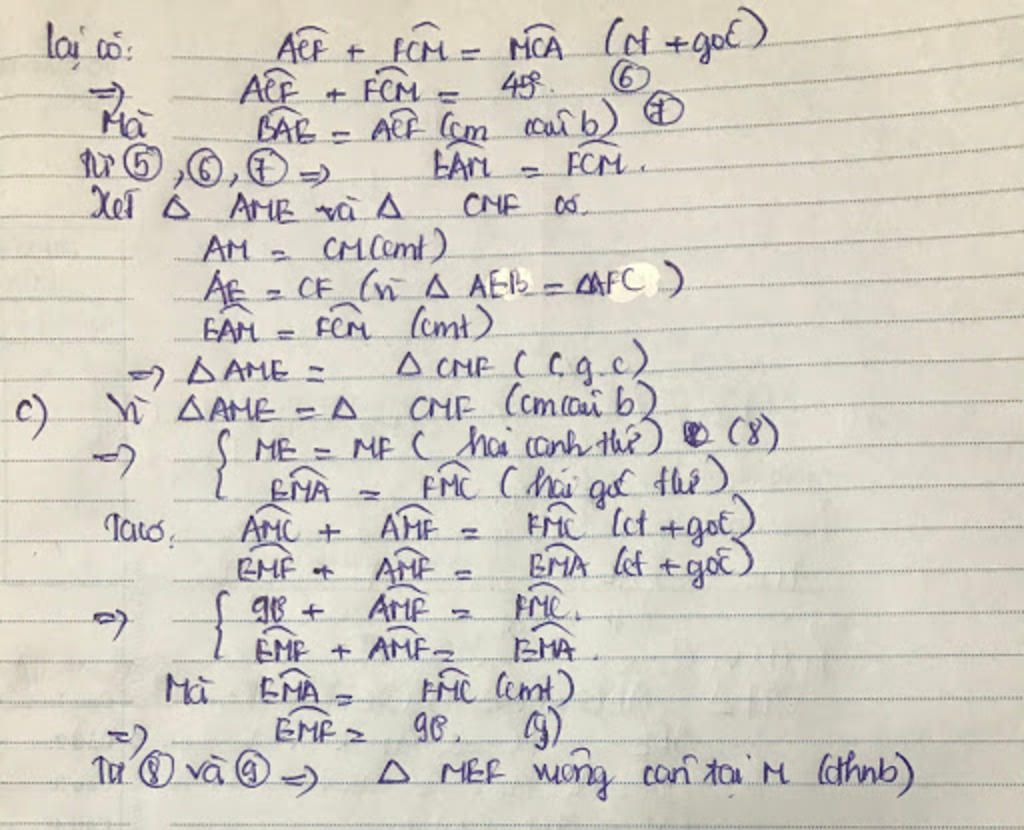 Lại có: ACF + FCM = MCA (ct + góc)
=> ACF + FCM = 45°. ⑥
Mà BAE = ACF (cm câu b) ⑦
Từ ⑤, ⑥, ⑦ => EAM = FCM.
Xét Δ AME và Δ CMF có.
AM = CM (cmt)
AE = CF (vì Δ AEB = ΔAFC)
EAM = FCM (cmt)
=> Δ AME = Δ CMF (c.g.c)
c) Vì Δ AME = Δ CMF (cm câu b)
=> { ME = MF (hai cạnh t/ứ) (8)
EMA = FMC (hai góc t/ứ)
Ta có: AMC + AMF = FMC (ct + góc)
EMF + AMF = EMA (ct + góc)
=> { 90° + AMF = FMC.
EMF + AMF = EMA.
Mà EMA = FMC (cmt)
=> EMF = 90°. (9)
Từ ⑧ và ⑨ => Δ MEF vuông cân tại M (dhnb)